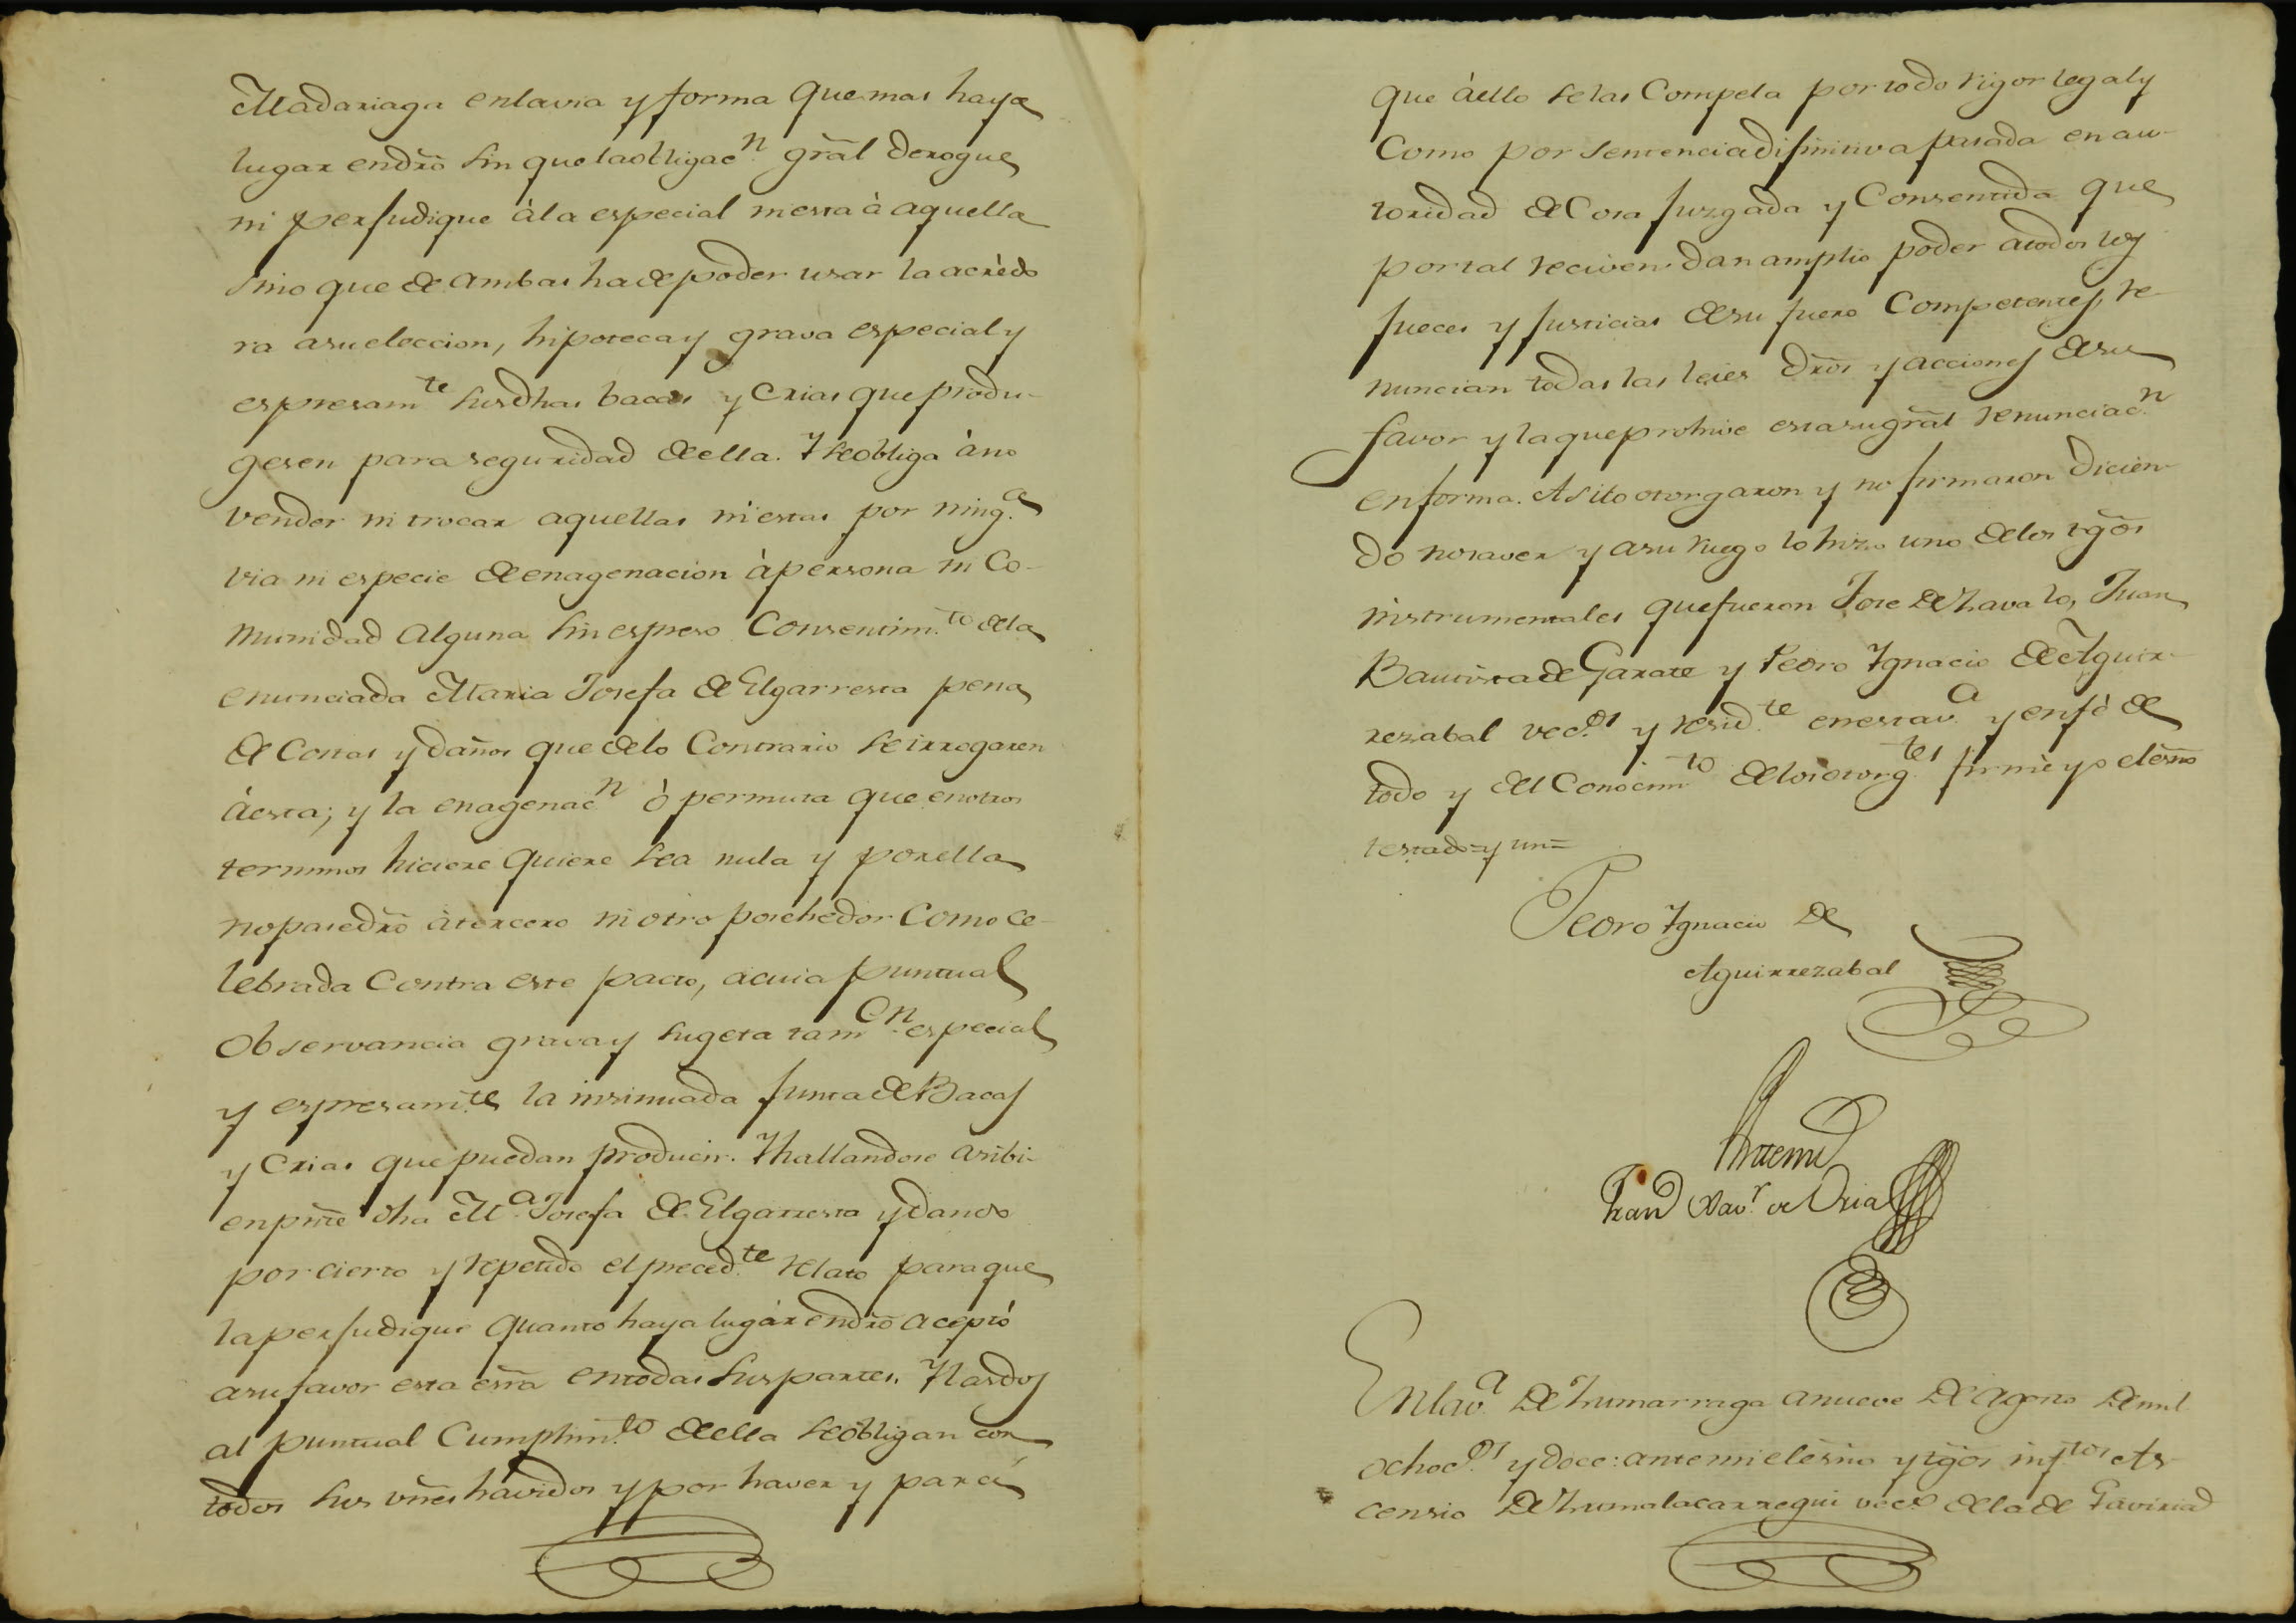 Madariaga en la via y forma que mas haya
lugar en dr̃o sin que la obligac.n gr̃al derogue
ni perjudique à la especial ni esta à aquella
sino que de ambas ha de poder usar la acrèedo
ra a su eleccion, hipoteca y grava especial y
espresam.te sus dhas bacas y Crias que produ-
gesen para seguridad de ella. Y se obliga à no
vender ni trocar aquellas ni estas por ning.a
via ni especie de enagenacion à persona ni Co-
munidad Alguna sin espreso Consentim.to de la
enunciada Maria Josefa de Elgarresta pena
de Costas y daños que de lo Contrario se irrogaren
à esta; y la enagenac.n ò permuta que en otros
terminos hiciere quiere sea nula y por ella
no pase dr̃o à tercero ni otro posehedor Como ce-
lebrada Contra este pacto, a cuia puntual
Observancia grava y sugeta tam.en especial
y espresam.te la insinuada Junta de Bacas
y Crias que puedan producir. Y hallandose a ribi-
en pñte dha M.a Josefa de Elgarresta y dando
por cierto y repetido el preced.te relato para que
la perjudique quanto haya lugàr en dr̃o aceptó
a su favor esta esr̃a en todas sus partes. Y las dos
al puntual Cumplim.to de ella se obligan con
todos sus vñes havidos y por haver y para
que à ello se las Compela por todo rigor legal y
Como por sentencia difinitiva pasada en au-
toridad de Cosa juzgada y Consentida que
por tal reciven. dan amplio poder a todos los
jueces y justicias de su fuero Competentes, re-
nuncian todas las leies dr̃os y acciones de su
favor y la que prohive esta su gr̃al renunciac.n
en forma. Asi lo otorgaron y no firmaron dicien-
do no saver y a su ruego lo hizo uno de los tgõs
instrumentales que fueron Jose de Zavalo, Juan
Bautista de Garate y Pedro Ygnacio de Aguir-
rezabal vec.os y resid.te en esta v.a y en fè de
todo y del Conocim.to de los otorg.tes firmè yo el esño
testado=y un=
Pedro Ygnacio de
Aguirrezabal
Ante mi
Fran.co Xav.r de Oria
En la v.a de Zumarraga a nueve de Agosto de mil
ochoc.os y doce: ante mi el esño y tgõs inf.tos As-
censio de Zumalacarregui vec.o de la de Gaviria